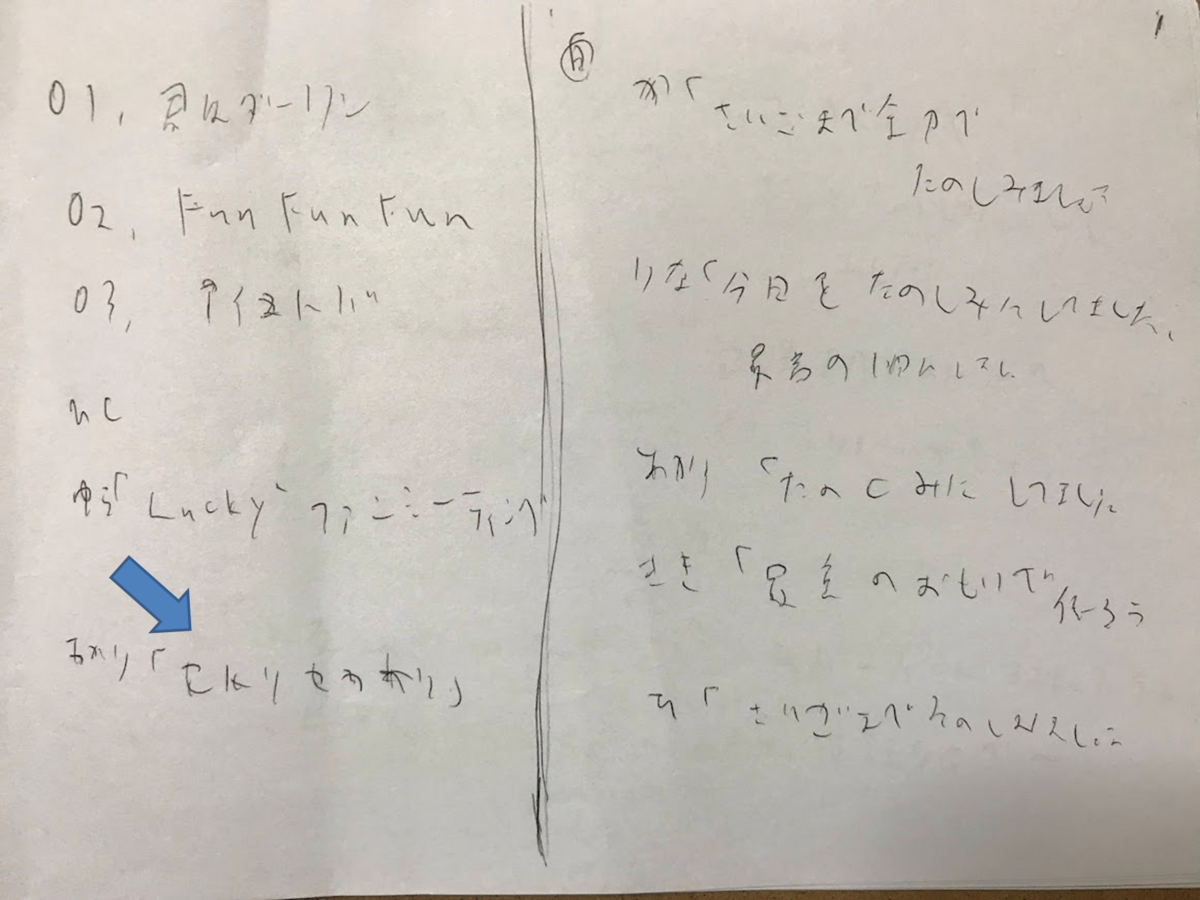 01, 君はダーリン
02, Fun Fun Fun
03, アイオトバ
MC
ゆう「Lucky ファンミーティング
あかり「
自
か「さいごまで全力で
たのしみましょ
りな「今日をたのしみにしてました、
最高の1日にしてし
あかり「たのしみにしてました
さき「最高のおもいで作ろう
「さいごまでたのしみましょ